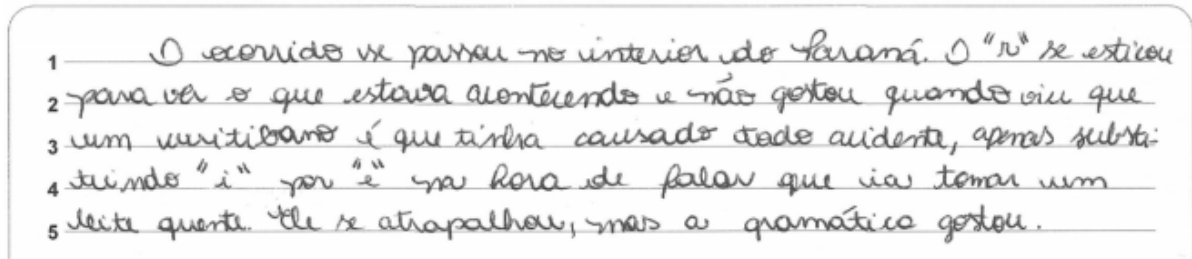 1 O ocorrido se passou no interior do Paraná. O "r" se esticou
2 para ver o que estava acontecendo e não gostou quando viu que
3 um curitibano é que tinha causado todo acidente, apenas substi-
4 tuindo "i" por "e" na hora de falar que ia tomar um
5 leite quente. Ele se atrapalhou, mas a gramática gostou.